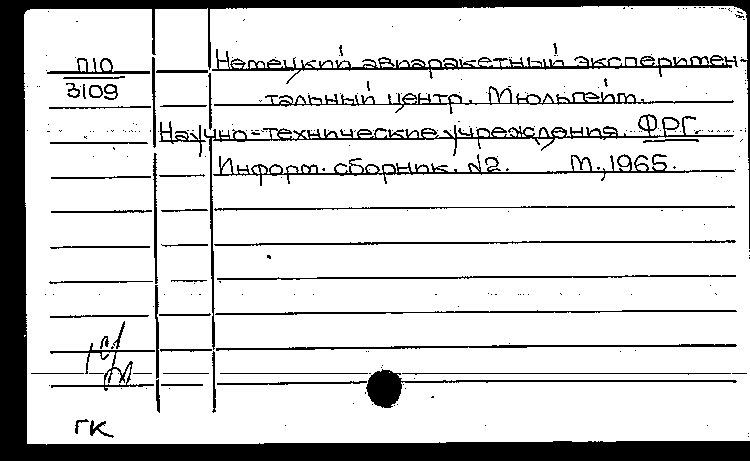 П10
3109
Немецкий авиаракетный эксперимен-
тальный центр. Мюльгейм.
Научно-технические учреждения. ФРГ.
Информ. сборник. №2. М., 1965.
ГК